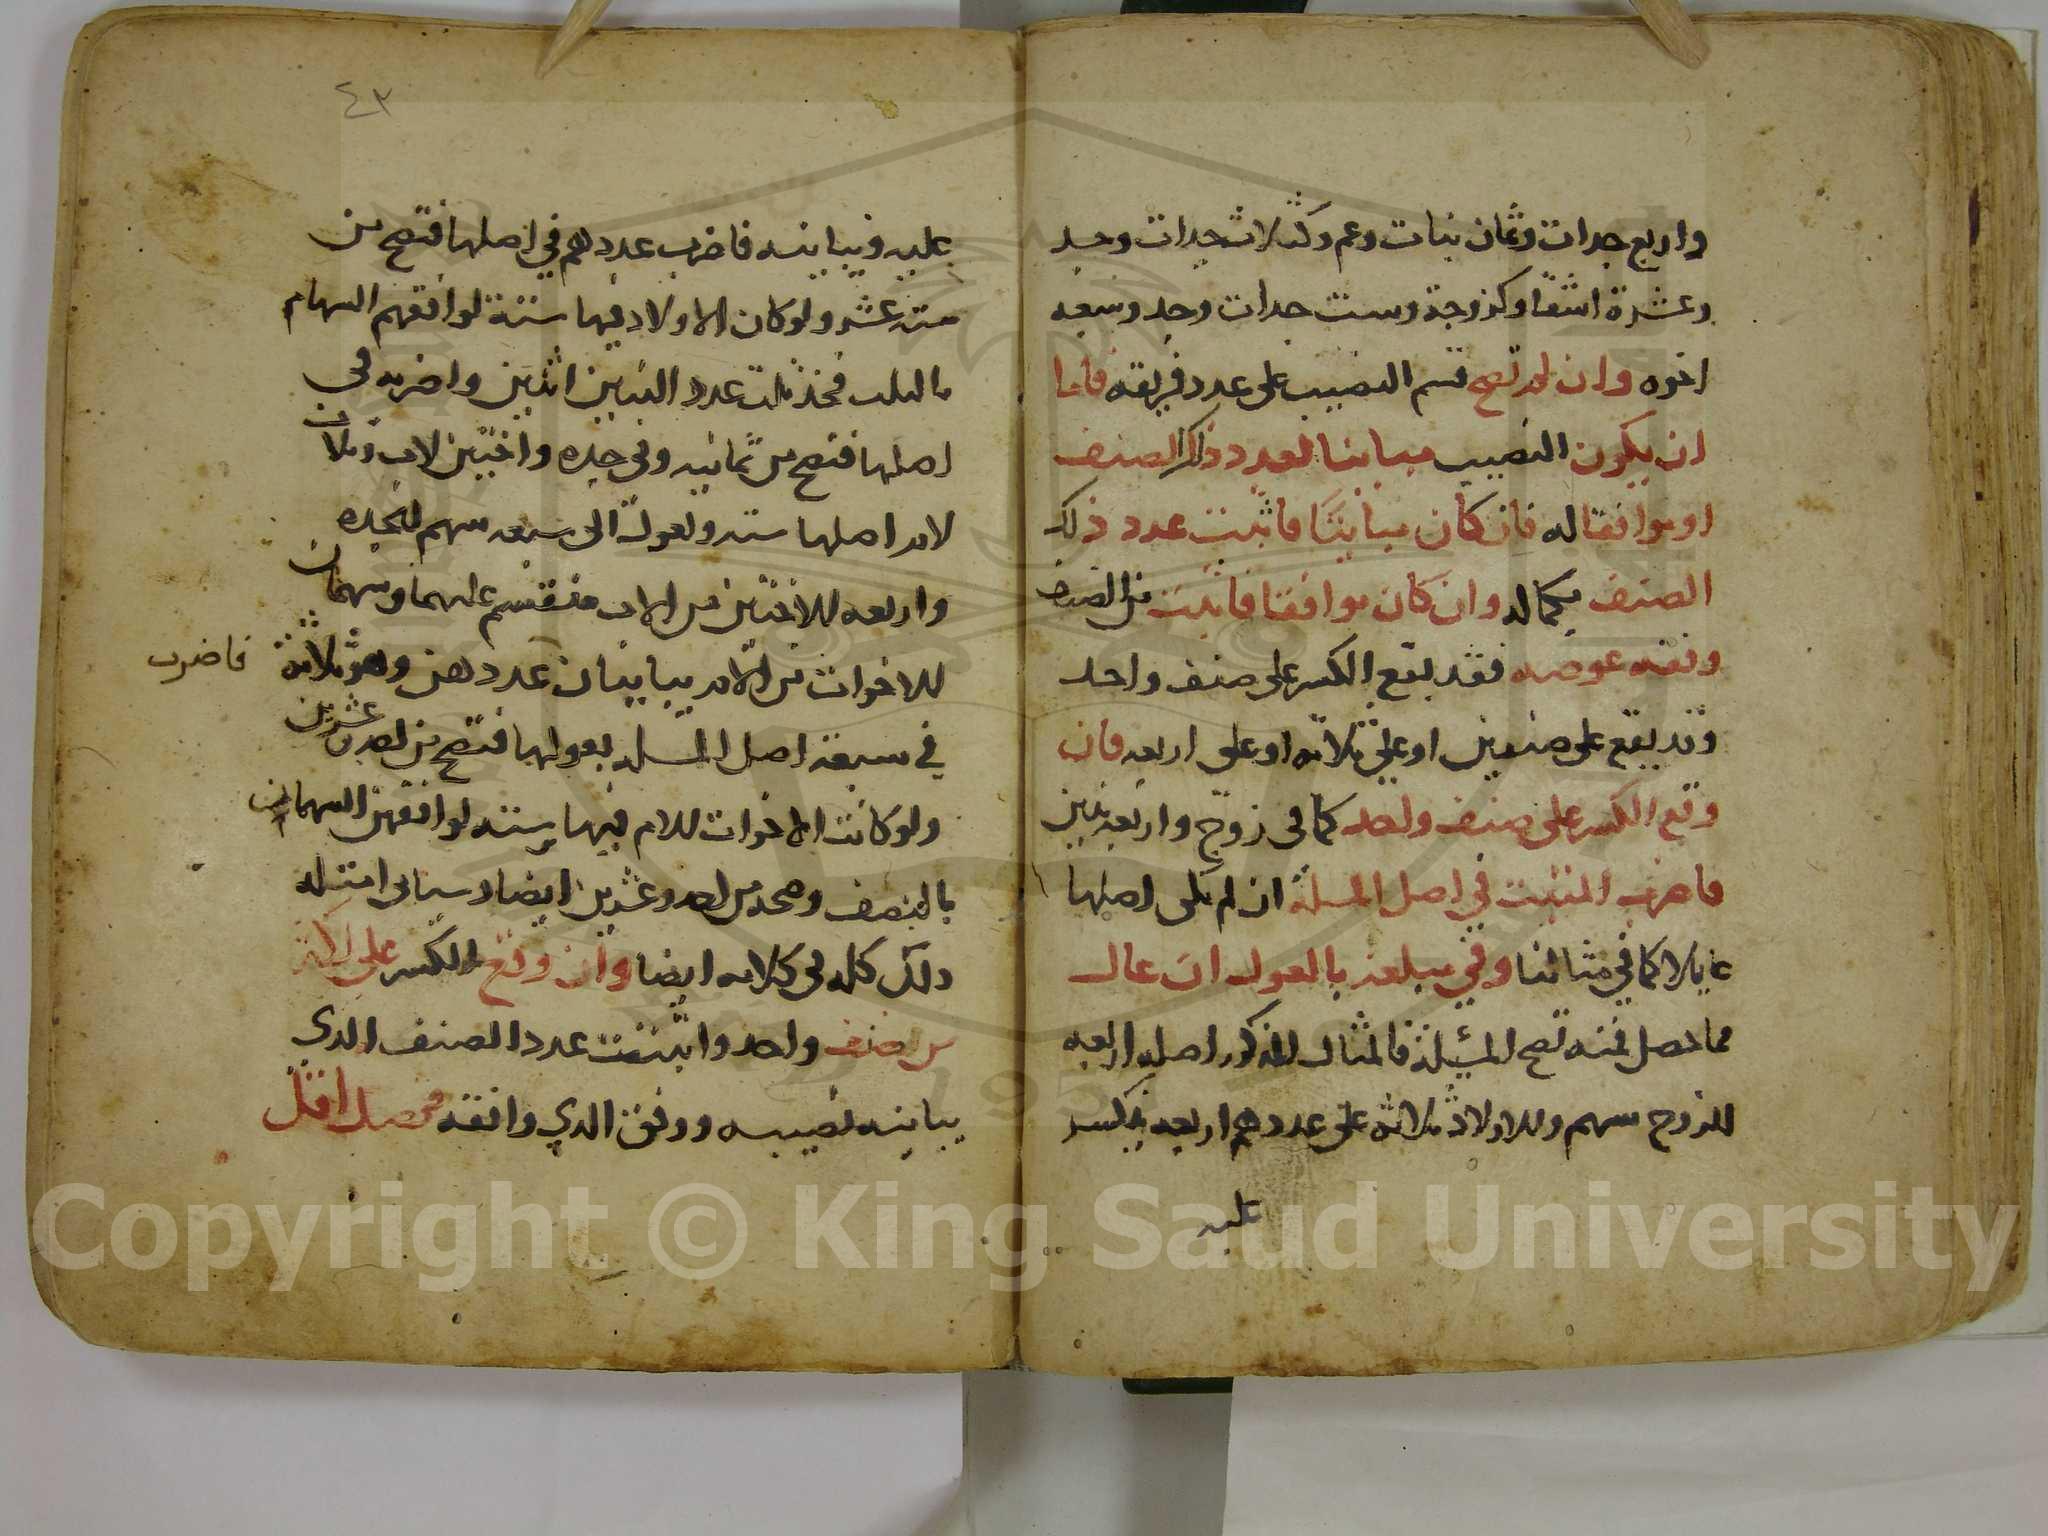 واربع جدات وثمان بنات وعم وكثلاث جدات وجد
وعشرة اشقا وكزوجة وست جدات وجد وسبعه
اخوه وان لم تصح قسم النصيب على عدد فريقه فاما
ان يكون النصيب مباينا لعدد ذلك الصنف
او موافقا له فان كان مباينا فاثبت عدد ذلك
الصنف بكماله وان كان موافقا فاثبت من الصنف
وفقه عوضه فقد يقع الكسر على صنف واحد
وقد يقع على صنفين او على ثلاثه او على اربعه فان
وقع الكسر على صنف واحد كما في زوج واربعه بنين
فاضرب المثبت في اصل المسلة ان لم تكن اصلها
عايلا كما في مثالنا وفي مبلغه بالعول ان عال
فما حصل فمنه تصح المسئلة فالمثال المذكور اصله اربعه
للزوج سهم وللاولاد ثلاثه على عددهم اربعه منكسر
عليه
٤٣
عليه ويباينه فاضرب عددهم في اصلها فتصح من
سته عشر ولو كان الاولاد فيها ستة لوافقهم السهام
بالثلث فخذ ثلث عدد البنين اثنين واضربه في
اصلها فتصح من ثمانيه وفي جده واختين لاب وثلاث
لام اصلها سته وتعول الى سبعه سهم للجده
واربعه للاختين من الاب منقسم عليهما وسهمان
للاخوات من الام يباينان عددهن وهو ثلاثة فاضرب
في سبعة اصل المسله بعولها فتصح من احد وعشرين
ولو كانت الاخوات للام فيها سته لوافقهن السهمان
بالنصف وصحت من احد وعشرين ايضا وسياتي امثله
ذلك كله في كلامه ايضا وان وقع الكسر على اكثر
من صنف واحد واثبت عدد الصنف الذي
يباينه نصيبه ووفق الذي وافقه فحصل اقل